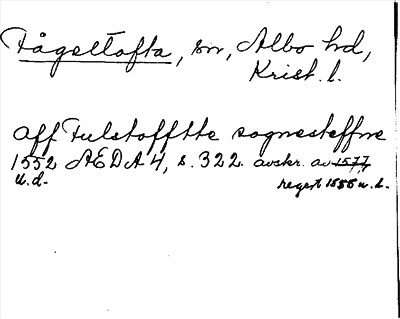 Fågeltofta, sn, Albo hd,
Krist. l.
aff Fulstofftte sognesteffne
1552 AEDA 4, s. 322. avskr. av 1577,
u.d.
regest 1555 u.d.